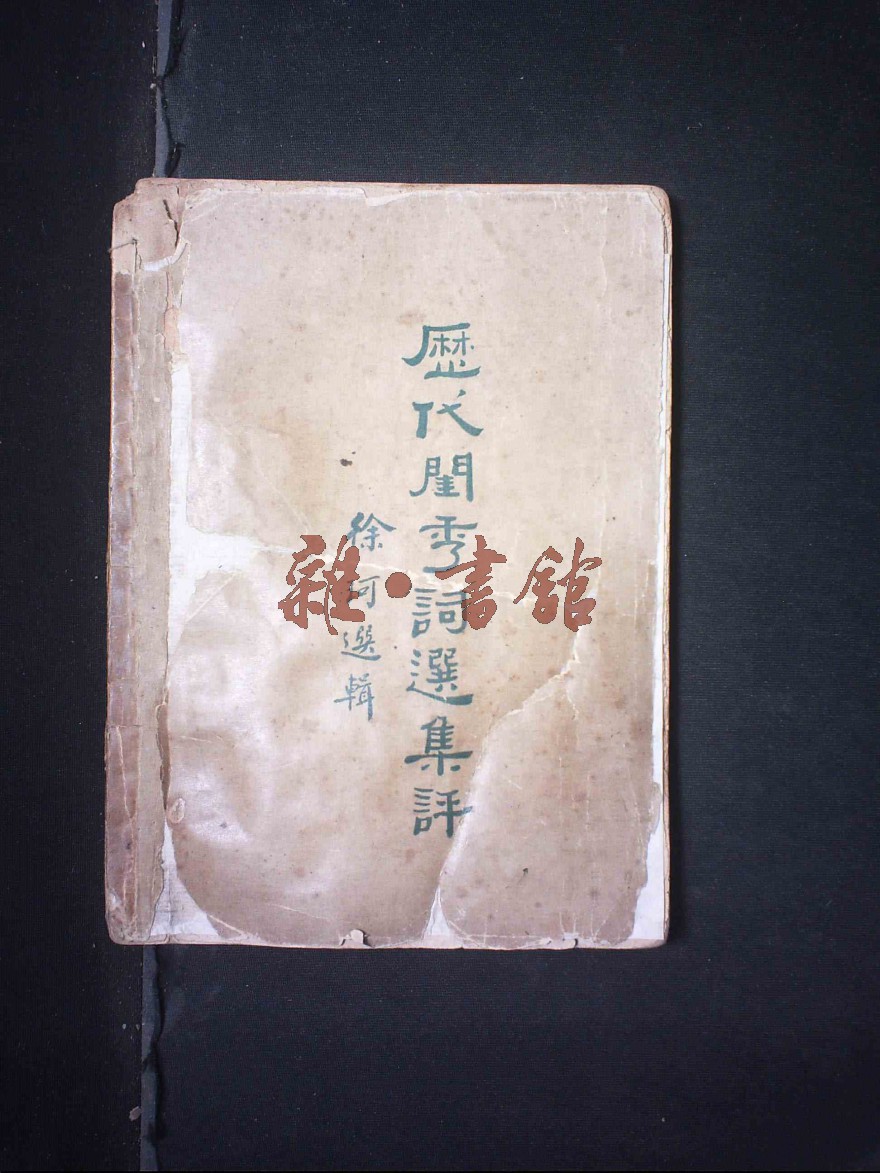 歷代閨秀詞選集評
徐珂選輯
雜·書館